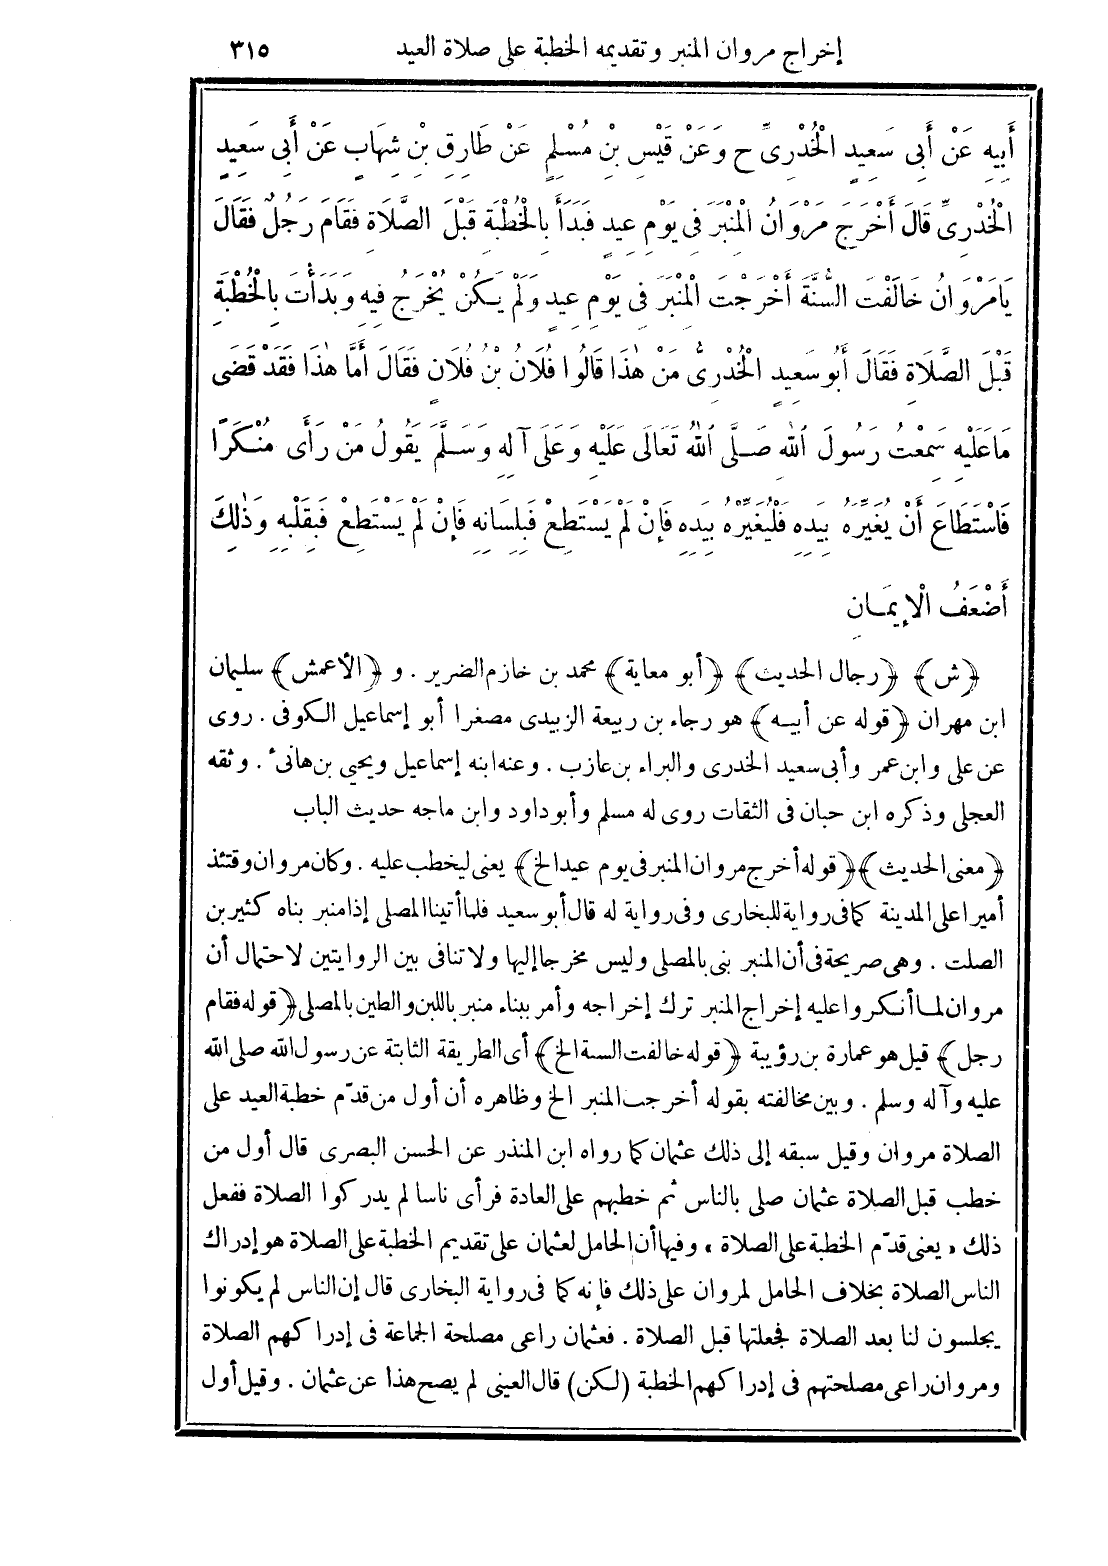 إخراج مروان المنبر وتقديمه الخطبة على صلاة العيد ٣١٥
أَبِيهِ عَنْ أَبِى سَعِيدٍ الْخُدْرِىِّ ح وَعَنْ قَيْسِ بْنِ مُسْلِمٍ عَنْ طَارِقِ بْنِ شِهَابٍ عَنْ أَبِى سَعِيدٍ
الْخُدْرِىِّ قَالَ أَخْرَجَ مَرْوَانُ الْمِنْبَرَ فِى يَوْمِ عِيدٍ فَبَدَأَ بِالْخُطْبَةِ قَبْلَ الصَّلَاةِ فَقَامَ رَجُلٌ فَقَالَ
يَامَرْوَانُ خَالَفْتَ السُّنَّةَ أَخْرَجْتَ الْمِنْبَرَ فِى يَوْمِ عِيدٍ وَلَمْ يَكُنْ يُخْرَجُ فِيهِ وَبَدَأْتَ بِالْخُطْبَةِ
قَبْلَ الصَّلَاةِ فَقَالَ أَبُو سَعِيدٍ الْخُدْرِىُّ مَنْ هٰذَا قَالُوا فُلَانُ بْنُ فُلَانٍ فَقَالَ أَمَّا هٰذَا فَقَدْ قَضَى
مَا عَلَيْهِ سَمِعْتُ رَسُولَ اللهِ صَلَّى اللهُ تَعَالَى عَلَيْهِ وَعَلَى آلِهِ وَسَلَّمَ يَقُولُ مَنْ رَأَى مُنْكَرًا
فَاسْتَطَاعَ أَنْ يُغَيِّرَهُ بِيَدِهِ فَلْيُغَيِّرْهُ بِيَدِهِ فَإِنْ لَمْ يَسْتَطِعْ فَبِلِسَانِهِ فَإِنْ لَمْ يَسْتَطِعْ فَبِقَلْبِهِ وَذٰلِكَ
أَضْعَفُ الْإِيمَانِ
﴿ش﴾ ﴿رجال الحديث﴾ ﴿أبو معاية﴾ محمد بن خازم الضرير . و ﴿الأعمش﴾ سليمان
ابن مهران ﴿قوله عن أبيه﴾ هو رجاء بن ربيعة الزبيدى مصغرا أبو إسماعيل الكوفى . روى
عن على وابن عمر وأبى سعيد الخدرى والبراء بن عازب . وعنه ابنه إسماعيل ويحيى بن هانىء . وثقه
العجلى وذكره ابن حبان فى الثقات روى له مسلم وأبو داود وابن ماجه حديث الباب
﴿معنى الحديث﴾ ﴿قوله أخرج مروان المنبر فى يوم عيد الخ﴾ يعنى ليخطب عليه . وكان مروان وقتئذ
أميرا على المدينة كما فى رواية للبخارى وفى رواية له قال أبو سعيد فلما أتينا المصلى إذا منبر بناه كثير بن
الصلت . وهى صريحة فى أن المنبر بنى بالمصلى وليس مخرجا إليها ولا تنافى بين الروايتين لاحتمال أن
مروان لما أنكروا عليه إخراج المنبر ترك إخراجه وأمر ببناء منبر باللبن والطين بالمصلى ﴿قوله فقام
رجل﴾ قيل هو عمارة بن رؤيبة ﴿قوله خالفت السنة الخ﴾ أى الطريقة الثابتة عن رسول الله صلى الله
عليه وآله وسلم . وبين مخالفته بقوله أخرجت المنبر الخ وظاهره أن أول من قدّم خطبة العيد على
الصلاة مروان وقيل سبقه إلى ذلك عثمان كما رواه ابن المنذر عن الحسن البصرى قال أول من
خطب قبل الصلاة عثمان صلى بالناس ثم خطبهم على العادة فرأى ناسا لم يدركوا الصلاة ففعل
ذلك « يعنى قدّم الخطبة على الصلاة » وفيها أن الحامل لعثمان على تقديم الخطبة على الصلاة هو إدراك
الناس الصلاة بخلاف الحامل لمروان على ذلك فإنه كما فى رواية البخارى قال إن الناس لم يكونوا
يجلسون لنا بعد الصلاة فجعلتها قبل الصلاة . فعثمان راعى مصلحة الجماعة فى إدراكهم الصلاة
ومروان راعى مصلحتهم فى إدراكهم الخطبة (لكن) قال العينى لم يصح هذا عن عثمان . وقيل أول